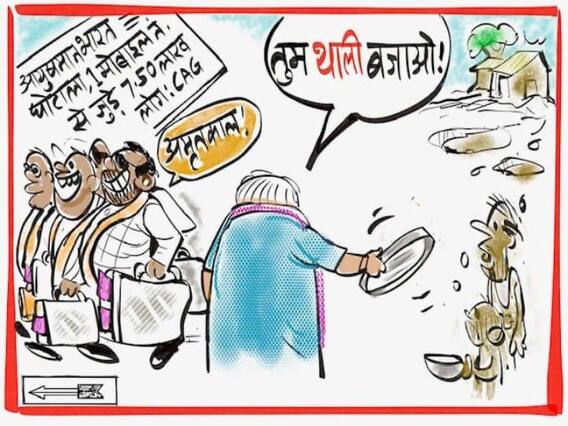 आयुष्मान भारत
घोटाला, 1 मोबाइल नं.
से जुड़े 7.50 लाख
लोग: CAG
अमृतकाल!
तुम थाली बजाओ!